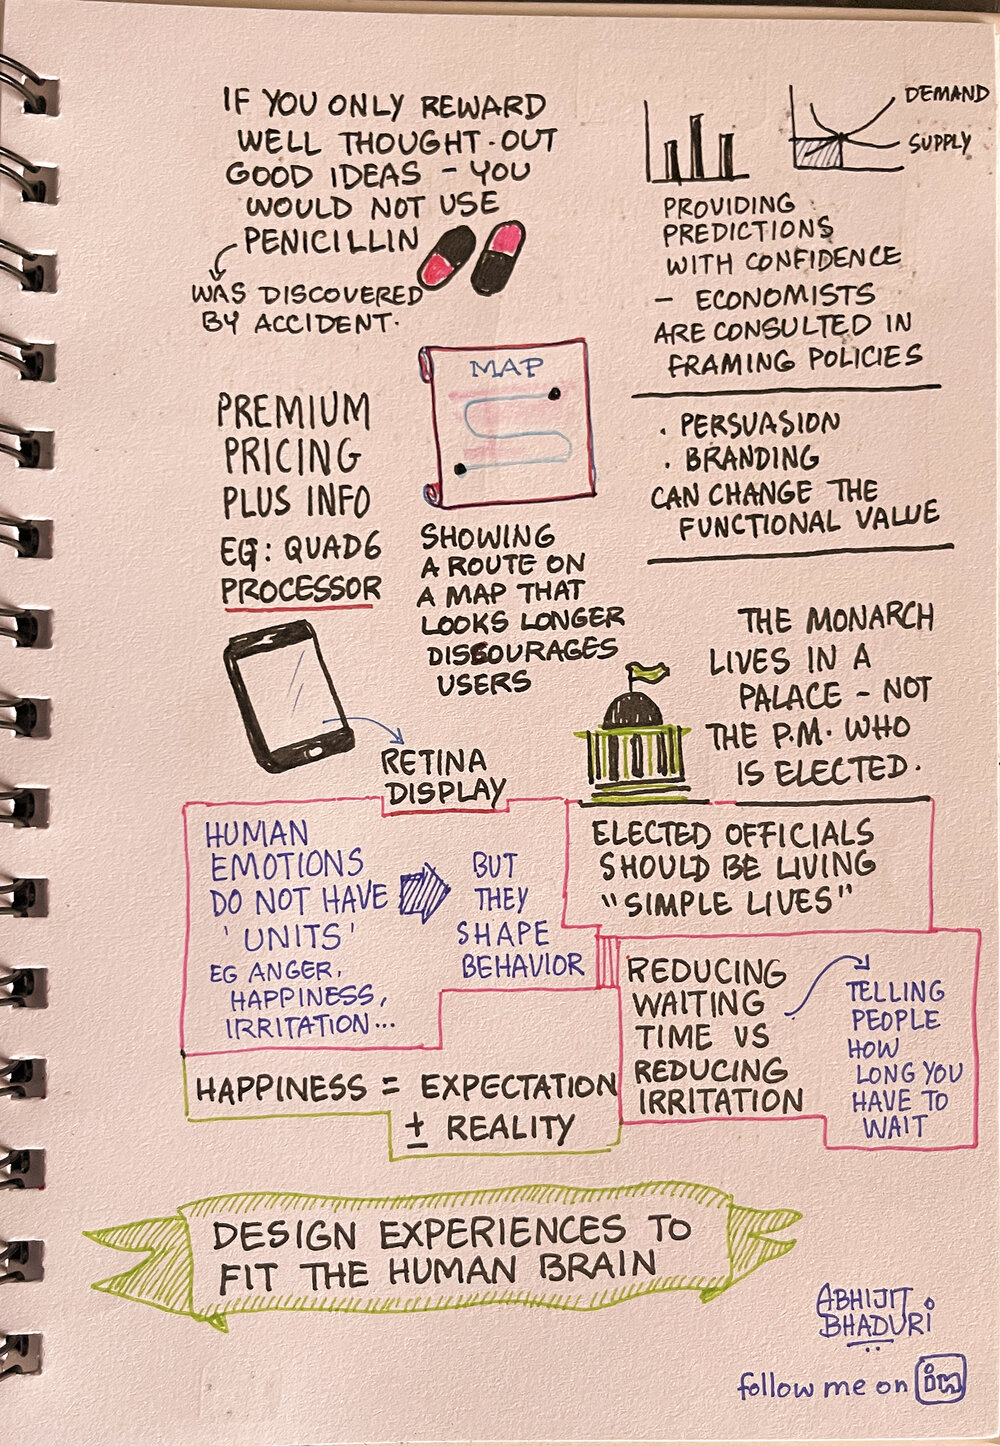 IF YOU ONLY REWARD
WELL THOUGHT-OUT
GOOD IDEAS - YOU
WOULD NOT USE
PENICILLIN
WAS DISCOVERED
BY ACCIDENT.
DEMAND
SUPPLY
PROVIDING
PREDICTIONS
WITH CONFIDENCE
- ECONOMISTS
ARE CONSULTED IN
FRAMING POLICIES
MAP
SHOWING
A ROUTE ON
A MAP THAT
LOOKS LONGER
DISCOURAGES
USERS
PREMIUM
PRICING
PLUS INFO
EG: QUAD6
PROCESSOR
RETINA
DISPLAY
. PERSUASION
. BRANDING
CAN CHANGE THE
FUNCTIONAL VALUE
THE MONARCH
LIVES IN A
PALACE - NOT
THE P.M. WHO
IS ELECTED.
ELECTED OFFICIALS
SHOULD BE LIVING
"SIMPLE LIVES"
HUMAN
EMOTIONS
DO NOT HAVE
'UNITS'
EG ANGER,
HAPPINESS,
IRRITATION...
BUT
THEY
SHAPE
BEHAVIOR
REDUCING
WAITING
TIME VS
REDUCING
IRRITATION
TELLING
PEOPLE
HOW
LONG YOU
HAVE TO
WAIT
HAPPINESS = EXPECTATION
± REALITY
DESIGN EXPERIENCES TO
FIT THE HUMAN BRAIN
ABHIJIT
BHADURI
follow me on in